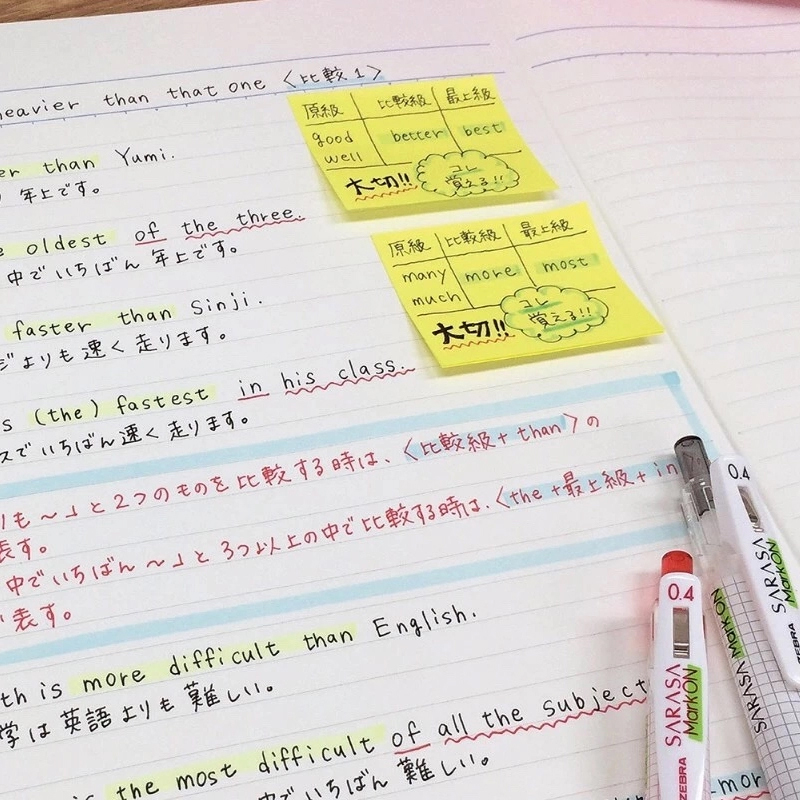 heavier than that one 〈比較1〉
原級 比較級 最上級
good better best
well
大切!! コレ
覚える!!
than Yumi.
年上です。
oldest of the three.
中でいちばん年上です。
原級 比較級 最上級
many more most
much
大切!! コレ
覚える!!
faster than Sinji.
よりも速く走ります。
(the) fastest in his class.
スでいちばん速く走ります。
りも〜」と2つのものを比較する時は、〈比較級+than〉の
表す。
中でいちばん〜」と3つ以上の中で比較する時は、〈the+最上級+in
表す。
is more difficult than English.
学は英語よりも難しい。
the most difficult of all the subject
中でいちばん難しい。
0.4
SARASA
MarkON
ZEBRA
0.4
SARASA
MarkON
ZEBRA
SARASA MarkON